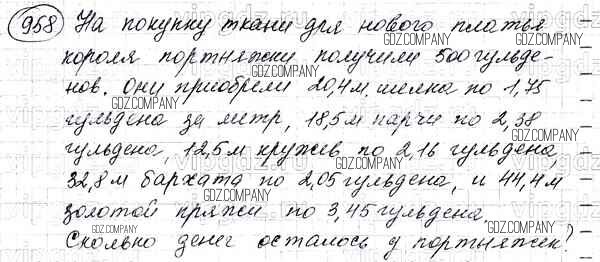 958 На покупку ткани для нового платья
короля портняжки получили 500 гульде-
нов. Они приобрели 20,4 м шелка по 1,75
гульдена за метр, 18,5 м парчи по 2,38
гульдена, 12,5 м кружев по 2,16 гульдена,
32,8 м бархата по 2,05 гульдена, и 44,4 м
золотой пряжи по 3,45 гульдена.
Сколько денег осталось у портняжек?
GDZ.COMPANY
GDZ.COMPANY
GDZ.COMPANY
GDZ.COMPANY
GDZ.COMPANY
GDZ.COMPANY
GDZ.COMPANY
GDZ.COMPANY
GDZ.COMPANY
GDZ.COMPANY
GDZ.COMPANY
GDZ.COMPANY